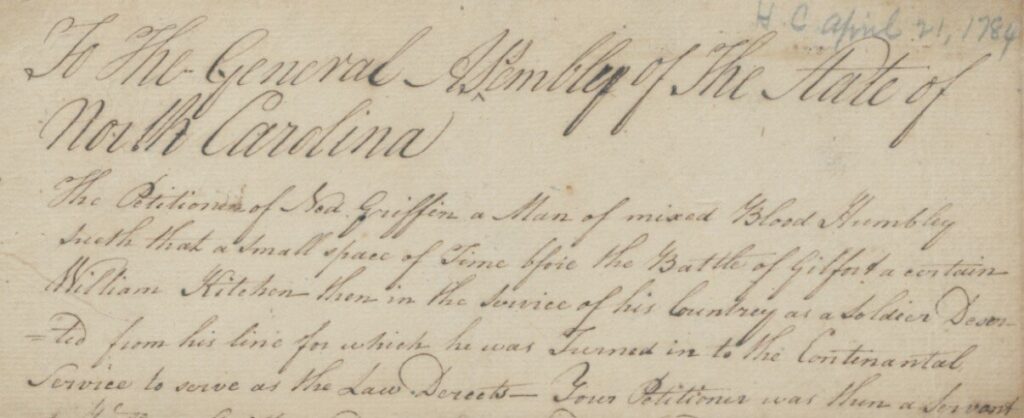 H C April 21, 1784
To The General Assembley of The State of
North Carolina
The Petitioner of Ned Griffin a Man of mixed Blood Humbley
that a small space of Time bfore the Battle of Gilford a certain
William Kitchen then in the Service of his Countrey as a Soldier Deser
=ted from his line for which he was Turned in to the Contenantal
Service to serve as the Law Derects— Your Petitioner was then a Servant